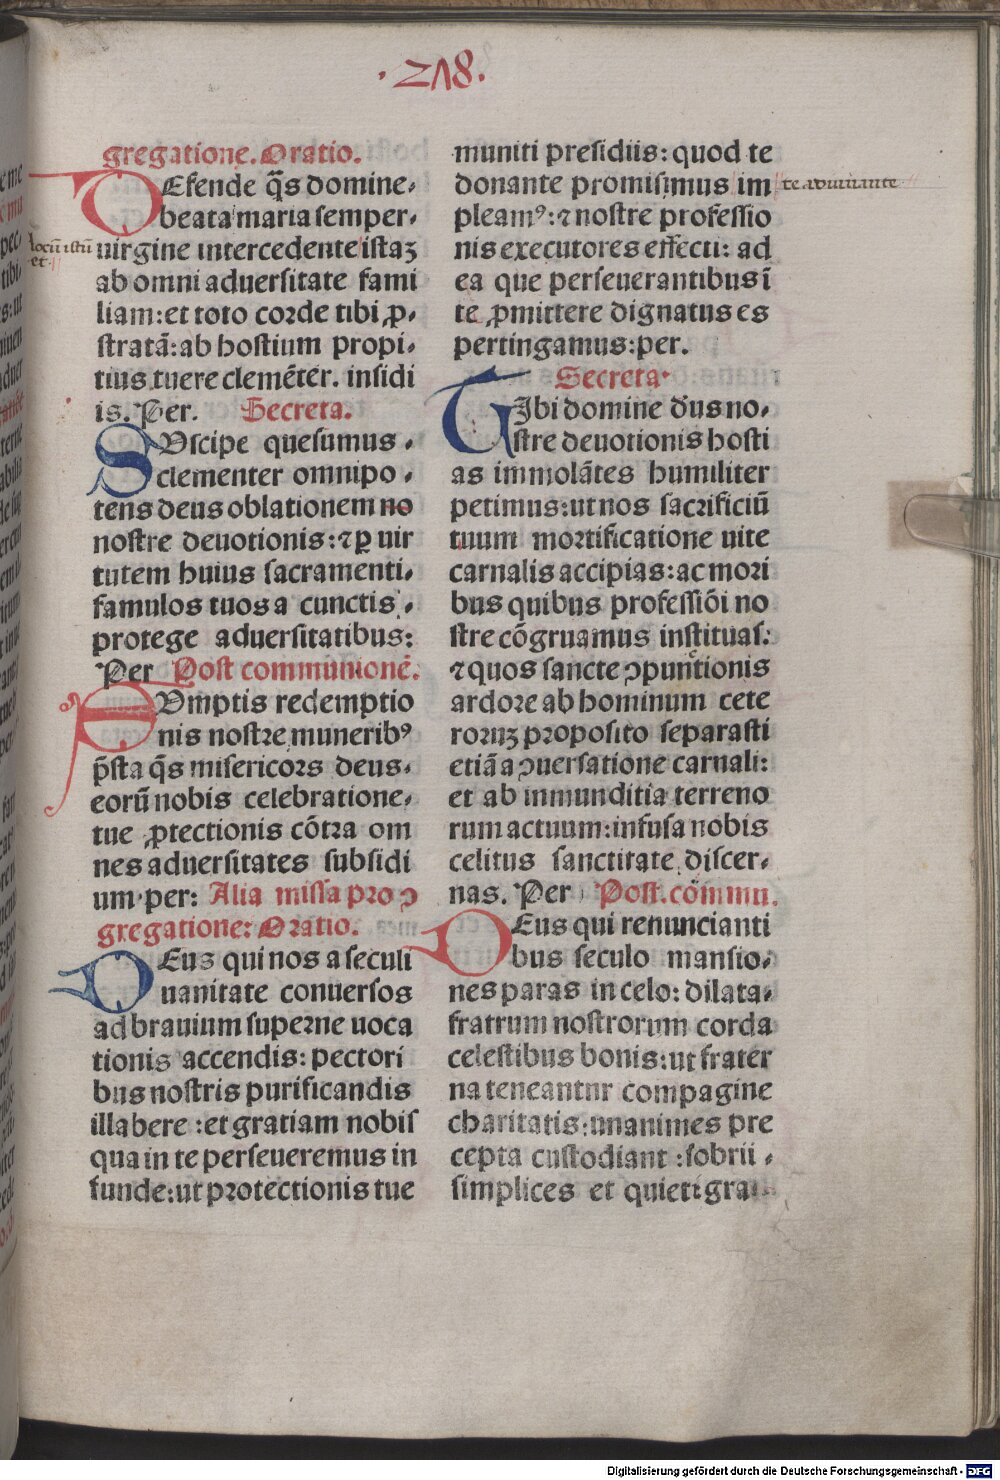 .218.
gregatione. Oratio.
DEfende q̄s domine,
beata maria semper,
uirgine intercedente istaꝫ
ab omni aduersitate fami
liam: et toto corde tibi ꝓ,
stratā: ab hostium propi,
tius tuere clemēter. insidi
is. Per. Secreta.
SVscipe quesumus,
clementer omnipo,
tens deus oblationem no
nostre deuotionis: ⁊ ꝑ uir
tutem huius sacramenti,
famulos tuos a cunctis,
protege aduersitatibus:
Per Post communionē.
SVmptis redemptio
nis nostre munerib⁹
p̄sta q̄s misericors deus,
eorū nobis celebratione,
tue ꝓtectionis cōtra om
nes aduersitates subsidi
um. per: Alia missa pro ↄ
gregatione: Oratio.
DEus qui nos a seculi
uanitate conuersos
ad brauium superne uoca
tionis accendis: pectori
bus nostris purificandis
illabere: et gratiam nobis
qua in te perseueremus in
funde: ut protectionis tue
locū istū
et
muniti presidiis: quod te
donante promisimus im
pleam⁹: ⁊ nostre professio
nis executores effecti: ad
ea que perseuerantibus ī
te ꝓmittere dignatus es
pertingamus: per.
Secreta.
TIbi domine d̄us no,
stre deuotionis hosti
as immolātes humiliter
petimus: ut nos sacrificiū
tuum mortificatione uite
carnalis accipias: ac mori
bus quibus professiōi no
stre cōgruamus instituas:
⁊ quos sancte ↄpunctionis
ardore ab hominum cete
rorūꝫ proposito separasti
etiā a ↄuersatione carnali:
et ab inmunditia terreno
rum actuum: infusa nobis
celitus sanctitate discer,
nas. Per Post. cōmmu.
DEus qui renuncianti
bus seculo mansio,
nes paras in celo: dilata,
fratrum nostrorum corda
celestibus bonis: ut frater
na teneantur compagine
charitatis: unanimes pre
cepta custodiant: sobrii,
simplices et quieti gra
te adiuuante
Digitalisierung gefördert durch die Deutsche Forschungsgemeinschaft - DFG